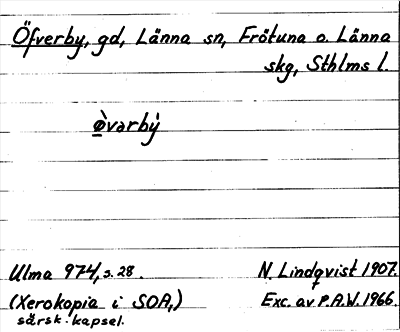 Öfverby, gd, Länna sn, Frötuna o. Länna
skg, Sthlms l.
ø̀varbẏ
Ulma 974, s. 28. N. Lindqvist 1907.
(Xerokopia i SOA,) Exc. av P.A.W. 1966.
särsk. kapsel.